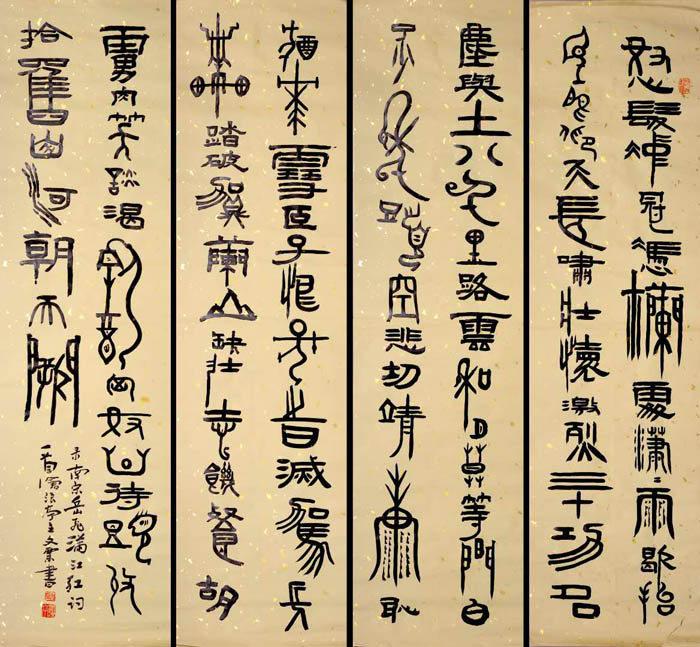 怒髮沖冠憑欄處瀟瀟雨歇抬
望眼仰天長嘯壯懷激烈三十功名
塵與土八千里路雲和月莫等閒白
了少年頭空悲切靖康恥
猶未雪臣子恨何時滅駕長
車踏破賀蘭山缺壯志饑餐胡
虜肉笑談渴飲匈奴血待從頭收
拾舊山河朝天闕
南宋岳飛滿江紅詞
書